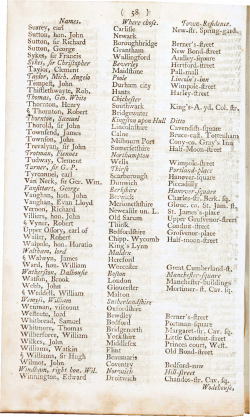 ( 58 )
Names. Where chose. Town-Residence.
Surrey, earl Carlisle New-str. Spring-gard.
Sutton, hon. John Newark
Sutton, sir Richard Boroughbridge Berner's-street
Sutton, George Grantham New Bond-street
Sykes, sir Francis Wallingford Audley-square
Sykes, sir Christopher Beverley Hertford-street
Taylor, Clement Maidstone Pall-mall
Taylor, Mich. Angelo Poole Lincoln's-inn
Tempest, John Durham city Wimpole-street
Thistlethwaite, Rob. Hants Harley-street
Thomas, Geo. White Chichester
Thornton, Henry Southwark King's-A. yd. Col. str.
Thornton, Robert Bridgewater
Thornton, Samuel Kingston upon Hull Ditto
Thorold, sir John Lincolnshire Cavendish-square
Townsend, John Calne Bruce-cast. Tottenham
Townson, John Milbourn Port Cony-co. Gray's Inn
Trevelyan, sir John Somersetshire Half-Moon-street
Trotman, Fiennes Northampton
Tudway, Clement Wells Wimpole-street
Turner, sir G. P. Thirsk Portland-place
Tyrconnel, earl Scarborough Hanover-square
Van Neck, sir Ger. Wm. Dunwich Piccadilly
Vansittart, George Berkshire Hanover-square
Vaughan, hon. John Berwick Charles-str. Berk. sq.
Vaughan, Evan Lloyd Merionethshire Glouc. co. St. Jam. st.
Vernon, Richard Newcastle un. L. St. James's-place
Villiers, hon. John Old Sarum Upper Grosvenor-street
Vyner, Robert Thirsk
Upper Ossory, earl of Bedfordshire Grosvenor-street
Waller, Robert Chipp. Wycomb Half-moon-street
Walpole, hon. Horatio King's Lynn
Waltham, lord Malden
Walwyn, James Hereford
Ward, hon. William Worcester Great Cumberland-st.
Watherston, Dalhousie Boston Manchester-square
Watson, Brook London Manchester-buildings
Webb, John Gloucester Mortimer-st. Cav. sq.
Weddell, William Malton
Wemyss, William Sutherlandshire
Wenman, viscount Oxfordshire
Westcote, lord Bewdley Berner's-street
Whitbread, Samuel Bedford Portman-square
Whitmore, Thomas Bridgenorth Margaret-str. Cav. sq.
Wilberforce, William Yorkshire Little Conduit-street
Wilkes, John Middlesex Princes court, Westm.
Williams, Watkin Flint Old Bond-street
Williams, sir Hugh Beaumaris
Wilmot, John Coventry Bedford-row
Windham, right hon. Wil. Norwich Hill-street
Winnington, Edward Droitwich Chandos-str. Cav. sq.
Wodehouse,